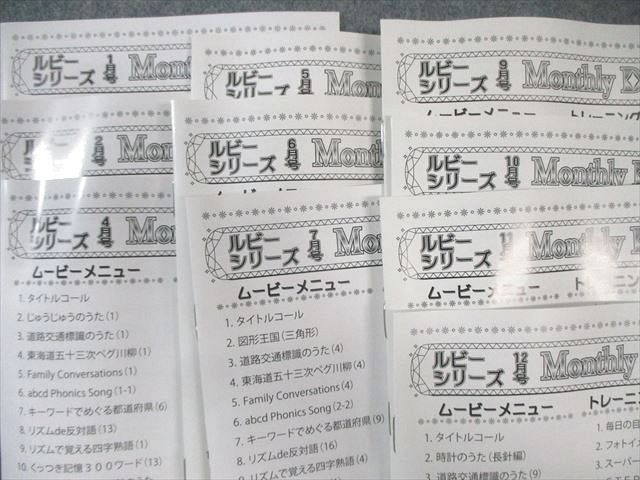 ルビー
シリーズ
1月号
Mont
ルビー
シリーズ
2月号
Mon
ルビー
シリーズ
4月号
Mon
ムービーメニュー
1. タイトルコール
2. じゅうじゅうのうた (1)
3. 道路交通標識のうた (1)
4. 東海道五十三次ペグ川柳 (1)
5. Family Conversations (1)
6. abcd Phonics Song (1-1)
7. キーワードでめぐる都道府県 (6)
8. リズムde反対語 (13)
9. リズムで覚える四字熟語 (1)
10. くっつき記憶300ワード (13)
ルビー
シリーズ
5月号
Mon
ルビー
シリーズ
6月号
Mont
ルビー
シリーズ
7月号
Mo
ムービーメニュー
1. タイトルコール
2. 図形王国 (三角形)
3. 道路交通標識のうた (4)
4. 東海道五十三次ペグ川柳 (4)
5. Family Conversations (4)
6. abcd Phonics Song (2-2)
7. キーワードでめぐる都道府県 (9)
8. リズムde反対語 (16)
9. リズムで覚える四字熟語 (4)
ルビー
シリーズ
9月号
Monthly
ムービーメニュー
トレーニング
ルビー
シリーズ
10月号
Monthly
ルビー
シリーズ
Monthly
ムービーメニュー
トレーニン
ルビー
シリーズ
12月号
Monthly
ムービーメニュー
トレーニ
1. タイトルコール
2. 時計のうた (長針編)
3. 道路交通標識のうた (9)
1. 毎日の目
2. フォトイ
3. スーパー